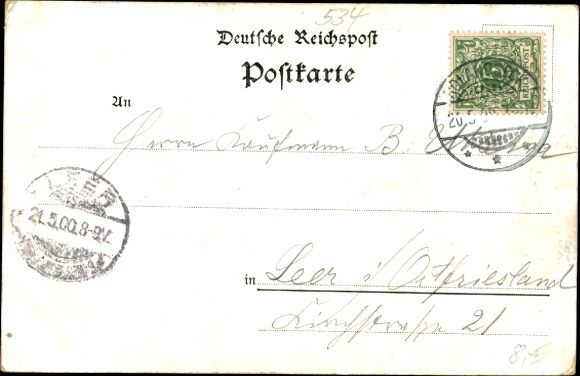 534
Deutsche Reichspost
Postkarte
REICHSPOST
5
An
Herrn Kaufmann B.
20.5.
LEER
21.5.00.8-9V.
in Leer i/Ostfriesland
Kirchstraße 21
8,-